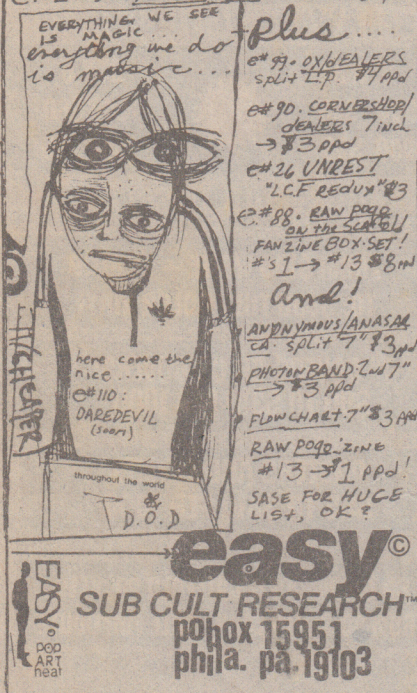 EVERYTHING WE SEE
IS MAGIC...
everything we do
is music...
here come the
nice ......
e#110:
DAREDEVIL
(soon)
throughout the world
D.O.D
/CHEAPER)
plus ....
e#99. OX/DEALERS
split L.P. $4 ppd
e#90. CORNERSHOP/
DEALERS 7inch
→ $3 ppd
e#26 UNREST
"L.C.F REDUX" $3
e#88. RAW POGO
on the SCAFFOLD
FANZINE BOX·SET!
#'s 1 → #13 $8 ppd
And!
ANONYMOUS/ANASAR
CA. split 7" $3 ppd
PHOTON BAND·2nd 7"
→ $3 ppd
FLOWCHART·7" $3 ppd
RAW POGO·ZINE
#13 → $1 ppd!
SASE FOR HUGE
LIST, OK?
easy©
SUB CULT RESEARCH™
pobox 15951
phila. pa.19103
EASY
POP
ART
neat